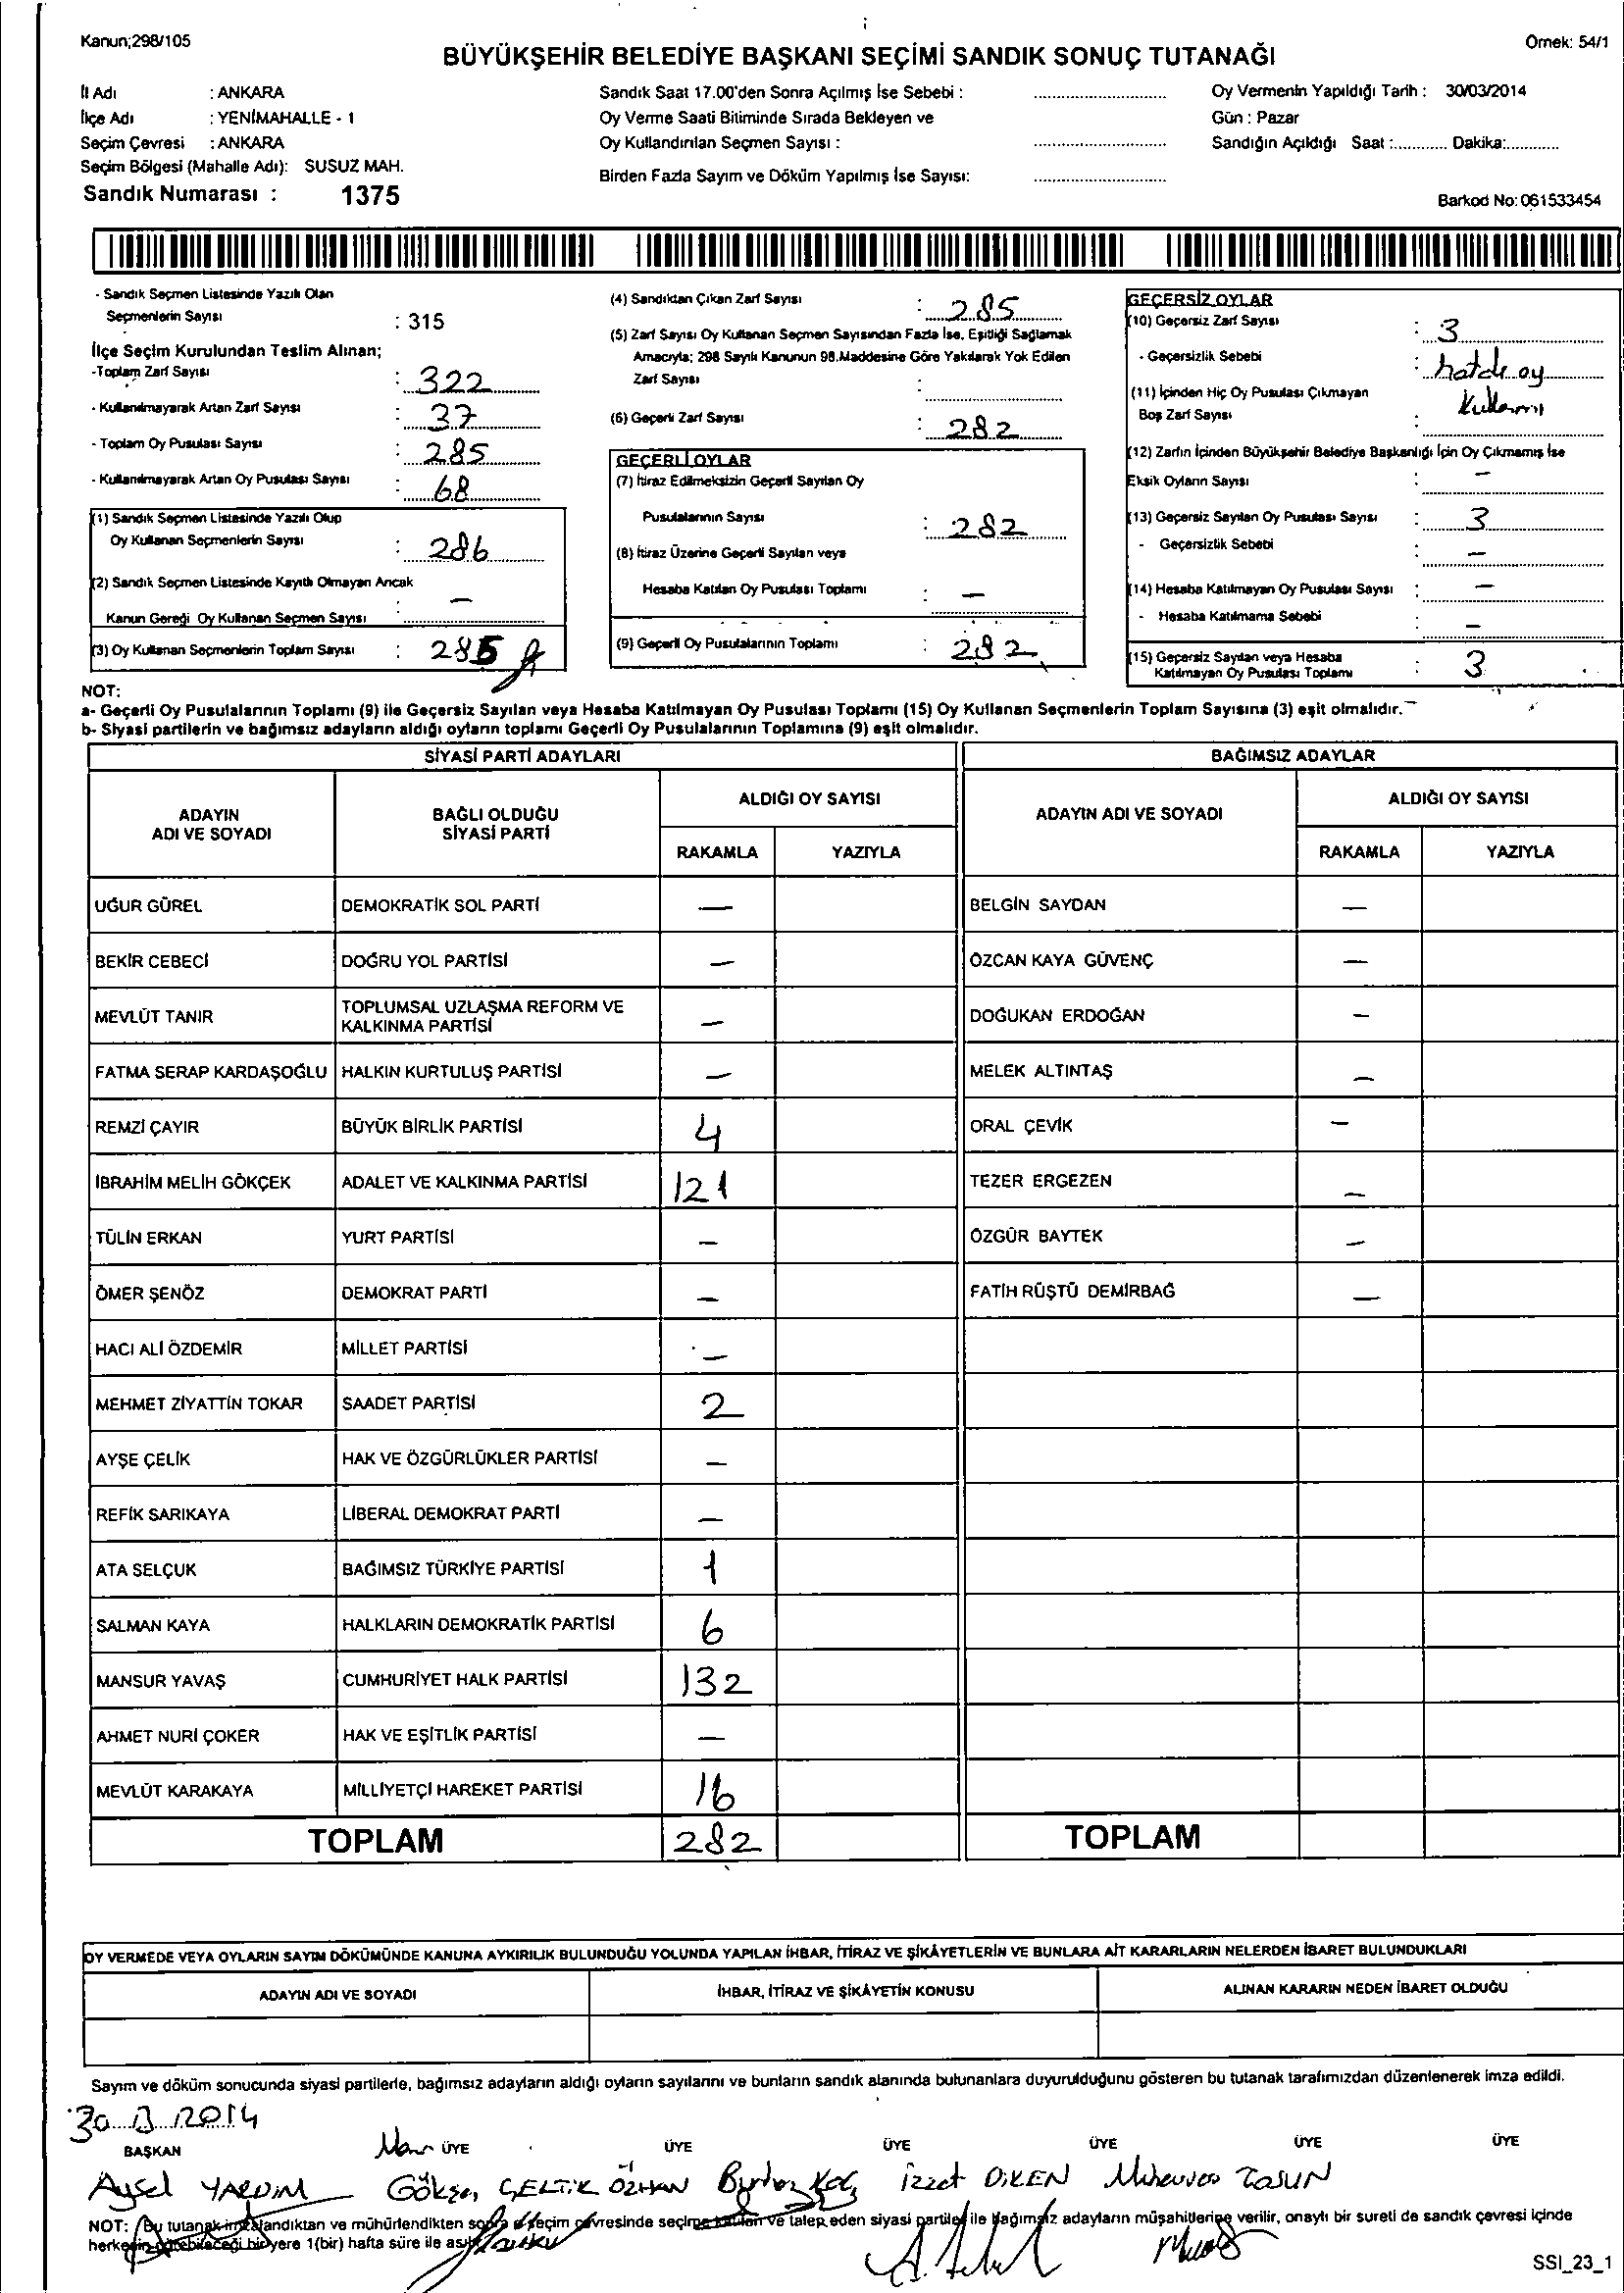 Kanun;298/105
Örnek: 54/1
BÜYÜKŞEHİR BELEDİYE BAŞKANI SEÇİMİ SANDIK SONUÇ TUTANAĞI
İl Adı : ANKARA
İlçe Adı : YENİMAHALLE - 1
Seçim Çevresi : ANKARA
Seçim Bölgesi (Mahalle Adı): SUSUZ MAH.
Sandık Numarası : 1375
Sandık Saat 17.00'den Sonra Açılmış İse Sebebi :
Oy Verme Saati Bitiminde Sırada Bekleyen ve
Oy Kullandırılan Seçmen Sayısı :
Birden Fazla Sayım ve Döküm Yapılmış İse Sayısı:
Oy Vermenin Yapıldığı Tarih : 30/03/2014
Gün : Pazar
Sandığın Açıldığı Saat :............ Dakika:............
Barkod No: 061533454
- Sandık Seçmen Listesinde Yazılı Olan
Seçmenlerin Sayısı : 315
İlçe Seçim Kurulundan Teslim Alınan;
-Toplam Zarf Sayısı : 322
- Kullanılmayarak Artan Zarf Sayısı : 37
- Toplam Oy Pusulası Sayısı : 285
- Kullanılmayarak Artan Oy Pusulası Sayısı : 68
(1) Sandık Seçmen Listesinde Yazılı Olup
Oy Kullanan Seçmenlerin Sayısı : 286
(2) Sandık Seçmen Listesinde Kayıtlı Olmayan Ancak
Kanun Gereği Oy Kullanan Seçmen Sayısı : –
(3) Oy Kullanan Seçmenlerin Toplam Sayısı : 285
(4) Sandıktan Çıkan Zarf Sayısı : 285
(5) Zarf Sayısı Oy Kullanan Seçmen Sayısından Fazla İse, Eşitliği Sağlamak
Amacıyla; 298 Sayılı Kanunun 98.Maddesine Göre Yakılarak Yok Edilen
Zarf Sayısı :
(6) Geçerli Zarf Sayısı : 282
GEÇERLİ OYLAR
(7) İtiraz Edilmeksizin Geçerli Sayılan Oy
Pusulalarının Sayısı : 282
(8) İtiraz Üzerine Geçerli Sayılan veya
Hesaba Katılan Oy Pusulası Toplamı : –
(9) Geçerli Oy Pusulalarının Toplamı : 282
GEÇERSİZ OYLAR
(10) Geçersiz Zarf Sayısı : 3
- Geçersizlik Sebebi : oy
(11) İçinden Hiç Oy Pusulası Çıkmayan
Boş Zarf Sayısı :
(12) Zarfın İçinden Büyükşehir Belediye Başkanlığı İçin Oy Çıkmamış İse
Eksik Oyların Sayısı : –
(13) Geçersiz Sayılan Oy Pusulası Sayısı : 3
- Geçersizlik Sebebi : –
(14) Hesaba Katılmayan Oy Pusulası Sayısı : –
- Hesaba Katılmama Sebebi : –
(15) Geçersiz Sayılan veya Hesaba
Katılmayan Oy Pusulası Toplamı : 3
NOT:
a- Geçerli Oy Pusulalarının Toplamı (9) ile Geçersiz Sayılan veya Hesaba Katılmayan Oy Pusulası Toplamı (15) Oy Kullanan Seçmenlerin Toplam Sayısına (3) eşit olmalıdır.
b- Siyasi partilerin ve bağımsız adayların aldığı oyların toplamı Geçerli Oy Pusulalarının Toplamına (9) eşit olmalıdır.
SİYASİ PARTİ ADAYLARI
BAĞIMSIZ ADAYLAR
ADAYIN
ADI VE SOYADI
BAĞLI OLDUĞU
SİYASİ PARTİ
ALDIĞI OY SAYISI
RAKAMLA YAZIYLA
ADAYIN ADI VE SOYADI
ALDIĞI OY SAYISI
RAKAMLA YAZIYLA
UĞUR GÜREL DEMOKRATİK SOL PARTİ – BELGİN SAYDAN –
BEKİR CEBECİ DOĞRU YOL PARTİSİ – ÖZCAN KAYA GÜVENÇ –
MEVLÜT TANIR TOPLUMSAL UZLAŞMA REFORM VE
KALKINMA PARTİSİ – DOĞUKAN ERDOĞAN –
FATMA SERAP KARDAŞOĞLU HALKIN KURTULUŞ PARTİSİ – MELEK ALTINTAŞ –
REMZİ ÇAYIR BÜYÜK BİRLİK PARTİSİ 4 ORAL ÇEVİK –
İBRAHİM MELİH GÖKÇEK ADALET VE KALKINMA PARTİSİ 121 TEZER ERGEZEN –
TÜLİN ERKAN YURT PARTİSİ – ÖZGÜR BAYTEK –
ÖMER ŞENÖZ DEMOKRAT PARTİ – FATİH RÜŞTÜ DEMİRBAĞ –
HACI ALİ ÖZDEMİR MİLLET PARTİSİ –
MEHMET ZİYATTİN TOKAR SAADET PARTİSİ 2
AYŞE ÇELİK HAK VE ÖZGÜRLÜKLER PARTİSİ –
REFİK SARIKAYA LİBERAL DEMOKRAT PARTİ –
ATA SELÇUK BAĞIMSIZ TÜRKİYE PARTİSİ 1
SALMAN KAYA HALKLARIN DEMOKRATİK PARTİSİ 6
MANSUR YAVAŞ CUMHURİYET HALK PARTİSİ 132
AHMET NURİ ÇOKER HAK VE EŞİTLİK PARTİSİ –
MEVLÜT KARAKAYA MİLLİYETÇİ HAREKET PARTİSİ 16
TOPLAM 282 TOPLAM
OY VERMEDE VEYA OYLARIN SAYIM DÖKÜMÜNDE KANUNA AYKIRILIK BULUNDUĞU YOLUNDA YAPILAN İHBAR, İTİRAZ VE ŞİKÂYETLERİN VE BUNLARA AİT KARARLARIN NELERDEN İBARET BULUNDUKLARI
ADAYIN ADI VE SOYADI İHBAR, İTİRAZ VE ŞİKÂYETİN KONUSU ALINAN KARARIN NEDEN İBARET OLDUĞU
Sayım ve döküm sonucunda siyasi partilerle, bağımsız adayların aldığı oyların sayılarını ve bunların sandık alanında bulunanlara duyurulduğunu gösteren bu tutanak tarafımızdan düzenlenerek imza edildi.
30 3 2014
BAŞKAN ÜYE ÜYE ÜYE ÜYE ÜYE ÜYE
Aysel YARDIM Gökşen ÇELTİK ÖZHAN Koç İzzet DİKEN TOSUN
NOT: Bu tutanak imzalandıktan ve mühürlendikten sonra o seçim çevresinde seçime katılan ve talep eden siyasi partiler ile bağımsız adayların müşahitlerine verilir, onaylı bir sureti de sandık çevresi içinde
herkesin görebileceği bir yere 1(bir) hafta süre ile
SSI_23_1